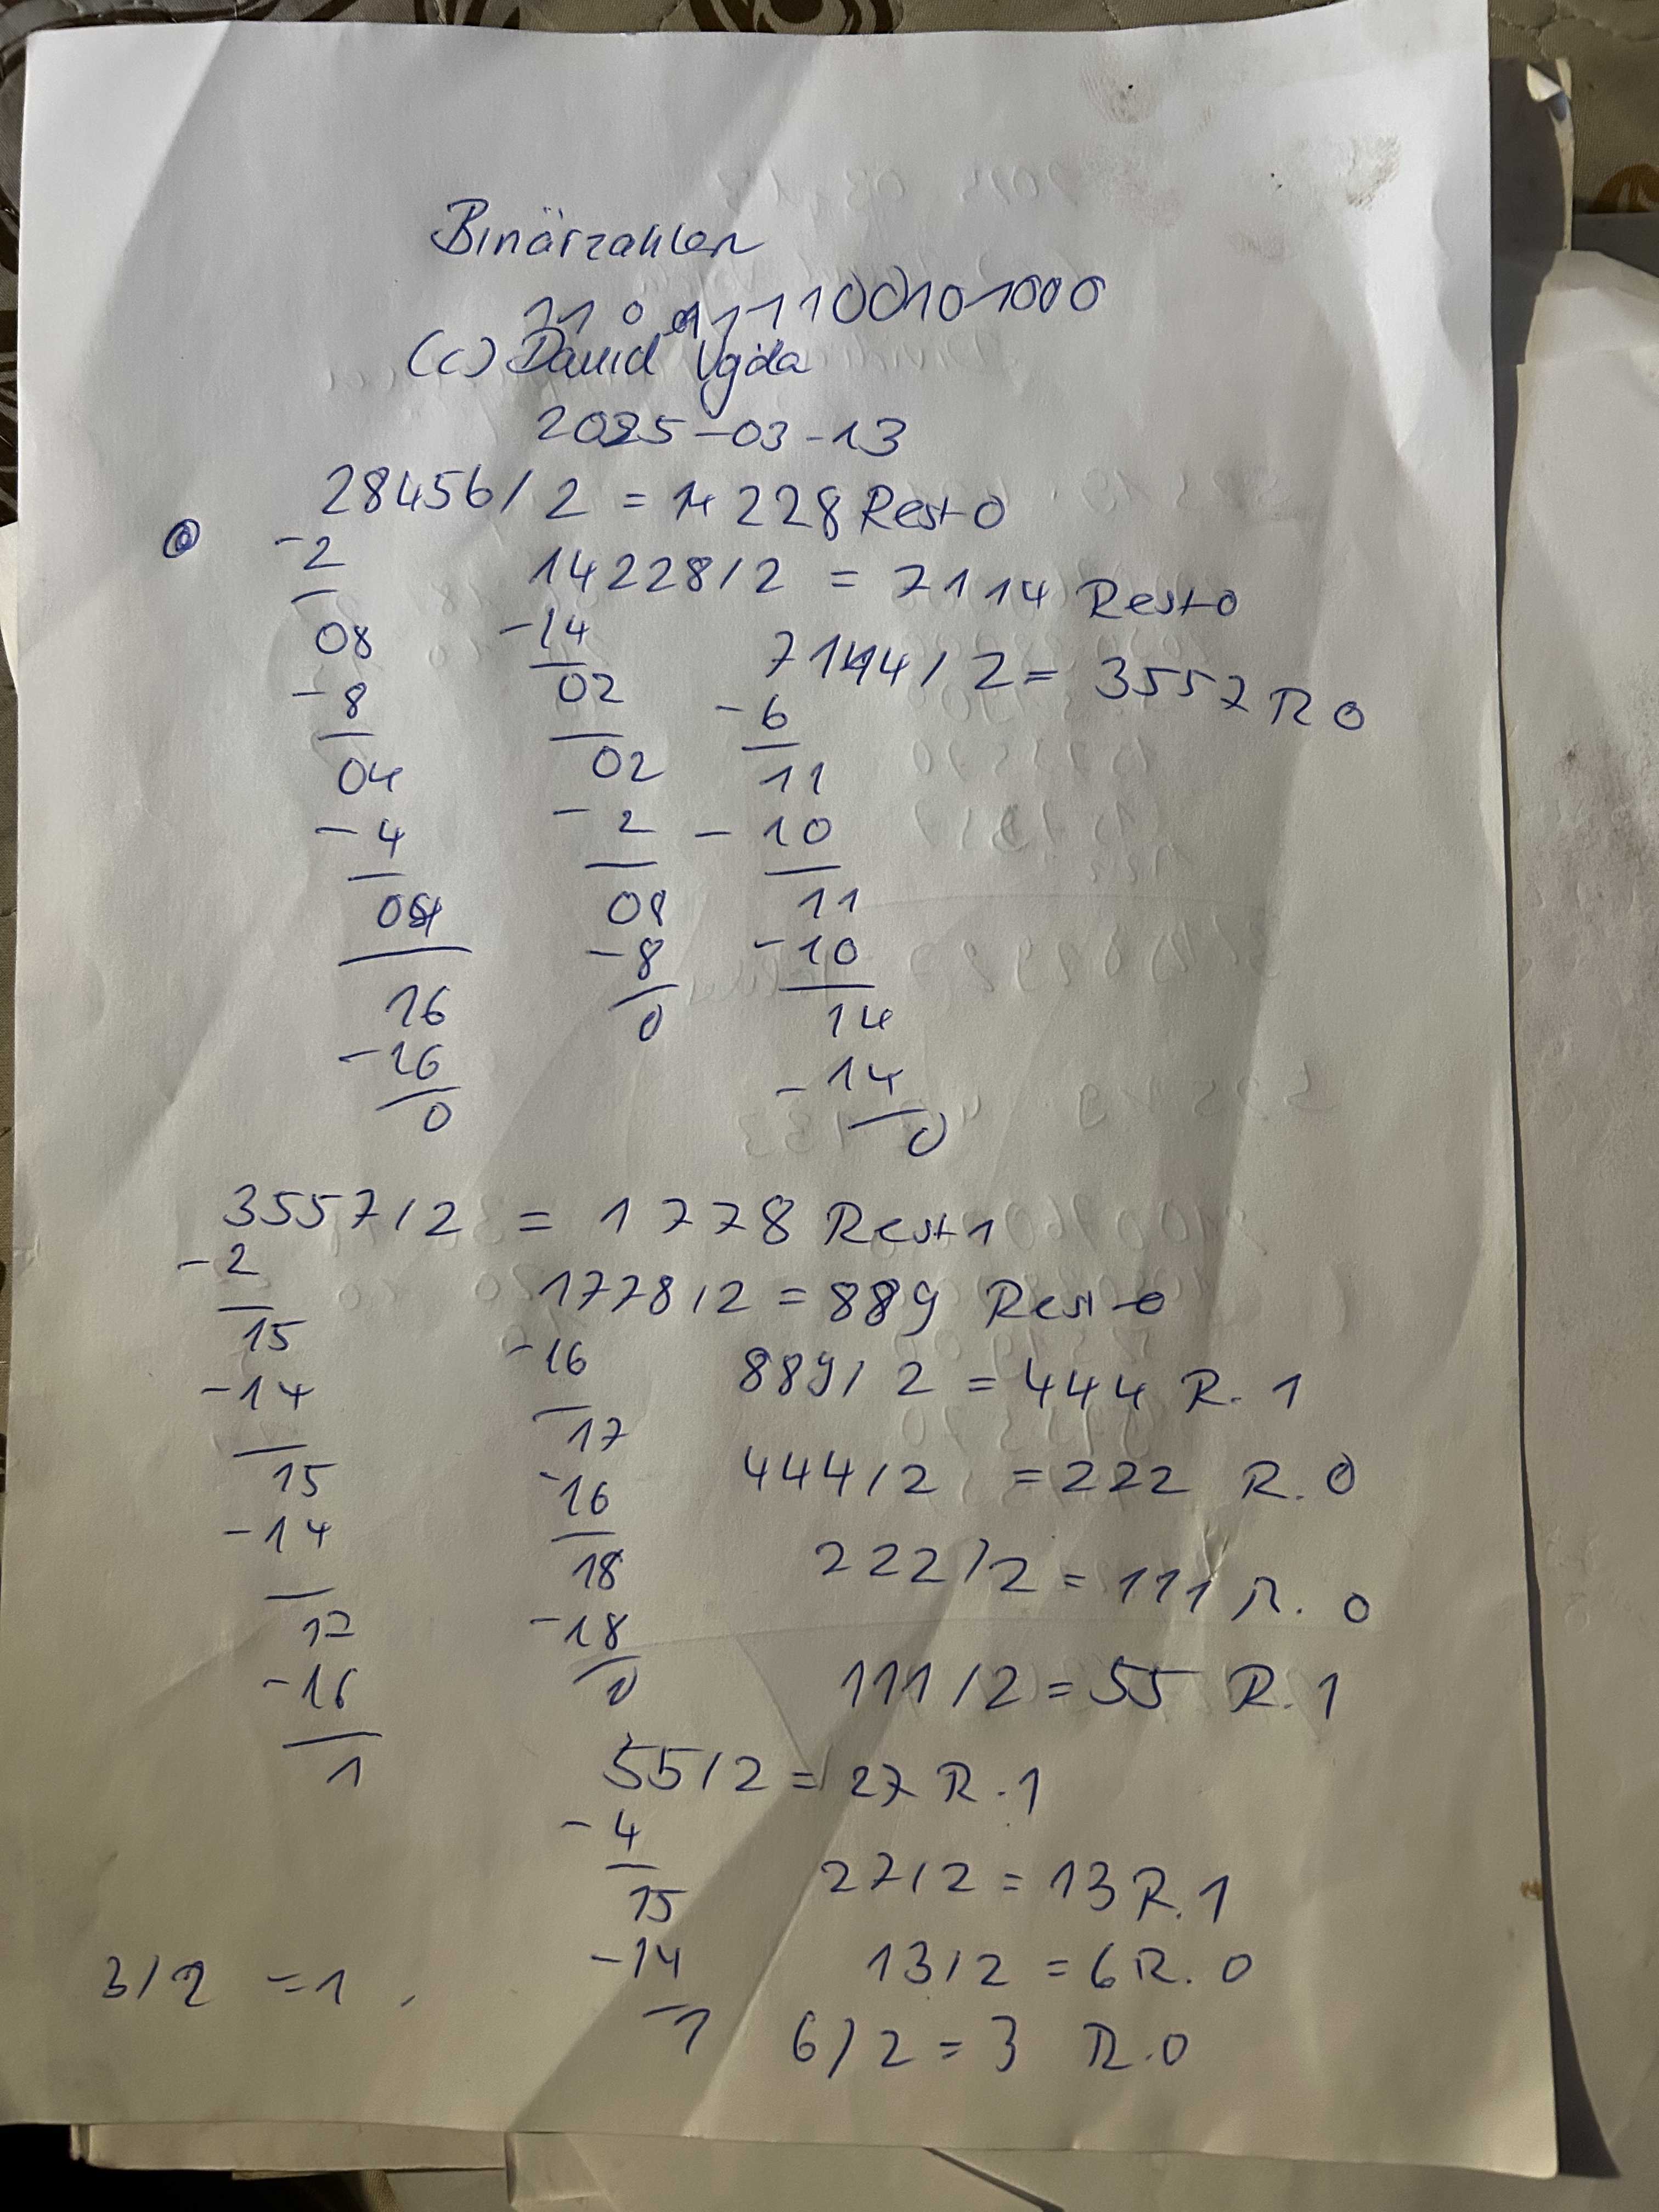 Binärzahlen
110111100101000
(c) David Vajda
2025-03-13
28456/2 = 14228 Rest 0
-2
08
-8
04
-4
05
16
-16
0
14228/2 = 7114 Rest 0
-14
02
02
-2
08
-8
0
7114/2 = 3557 R 0
-6
11
-10
11
-10
14
-14
0
3557/2 = 1778 Rest 1
-2
15
-14
15
-14
17
-16
1
1778/2 = 889 Rest 0
-16
17
-16
18
-18
0
889/2 = 444 R. 1
444/2 = 222 R. 0
222/2 = 111 R. 0
111/2 = 55 R. 1
55/2 = 27 R. 1
-4
15
-14
1
27/2 = 13 R. 1
13/2 = 6 R. 0
6/2 = 3 R. 0
3/2 = 1 .